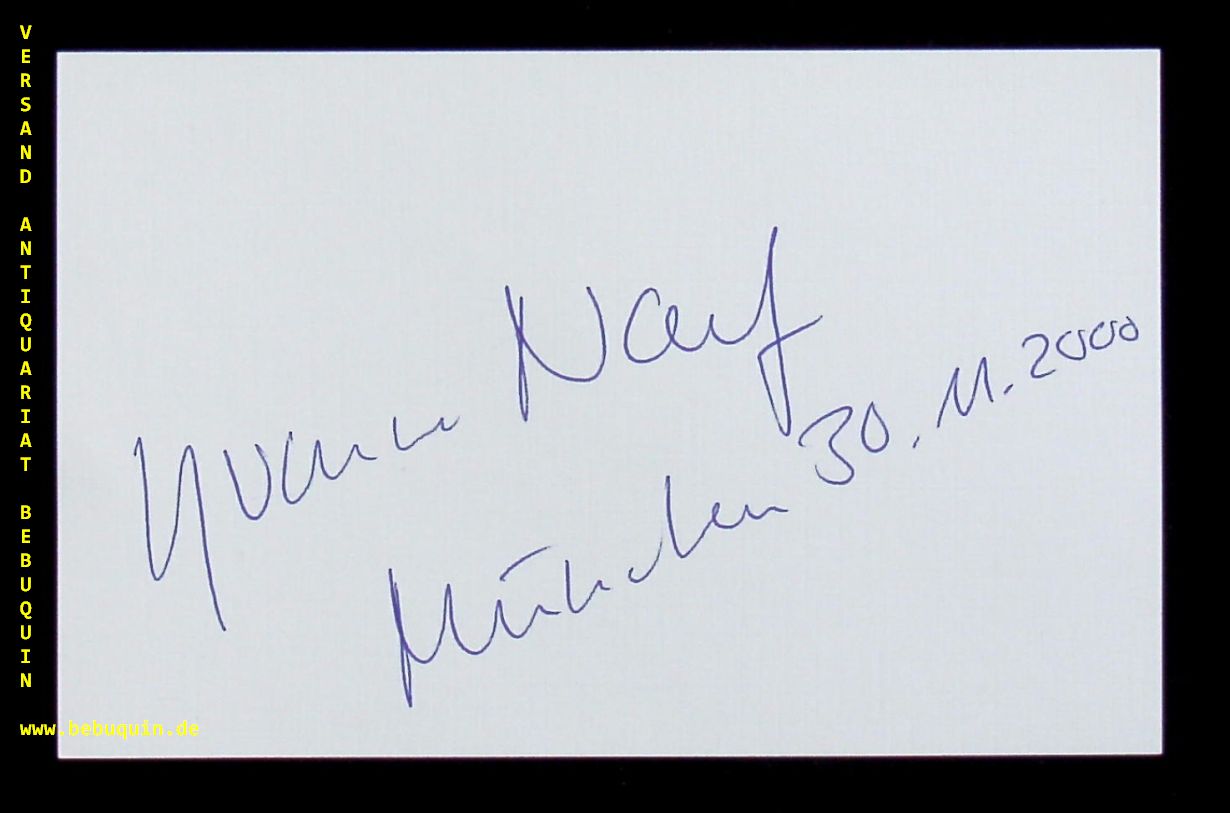 VERSAND ANTIQUARIAT BEBUQUIN
Yvonne Naef
München 30.11.2000
www.bebuquin.de